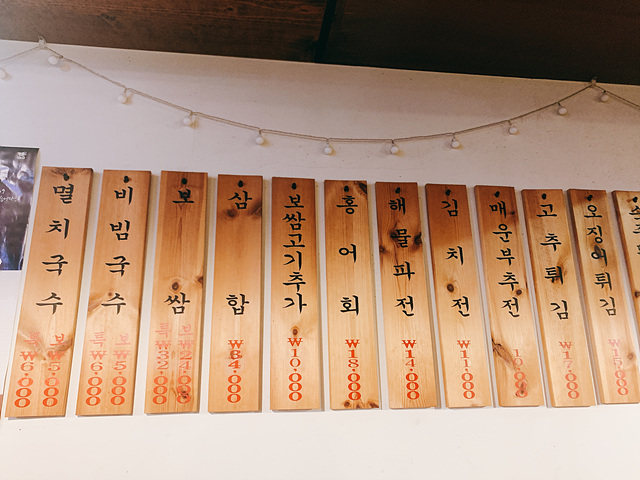 멸치국수
보 ₩5,000
특 ₩6,000
비빔국수
보 ₩5,000
특 ₩6,000
보쌈
보 ₩24,000
특 ₩32,000
삼합
₩34,000
보쌈고기추가
₩10,000
홍어회
₩18,000
해물파전
₩14,000
김치전
₩11,000
매운부추전
10,000
고추튀김
₩17,000
오징어튀김